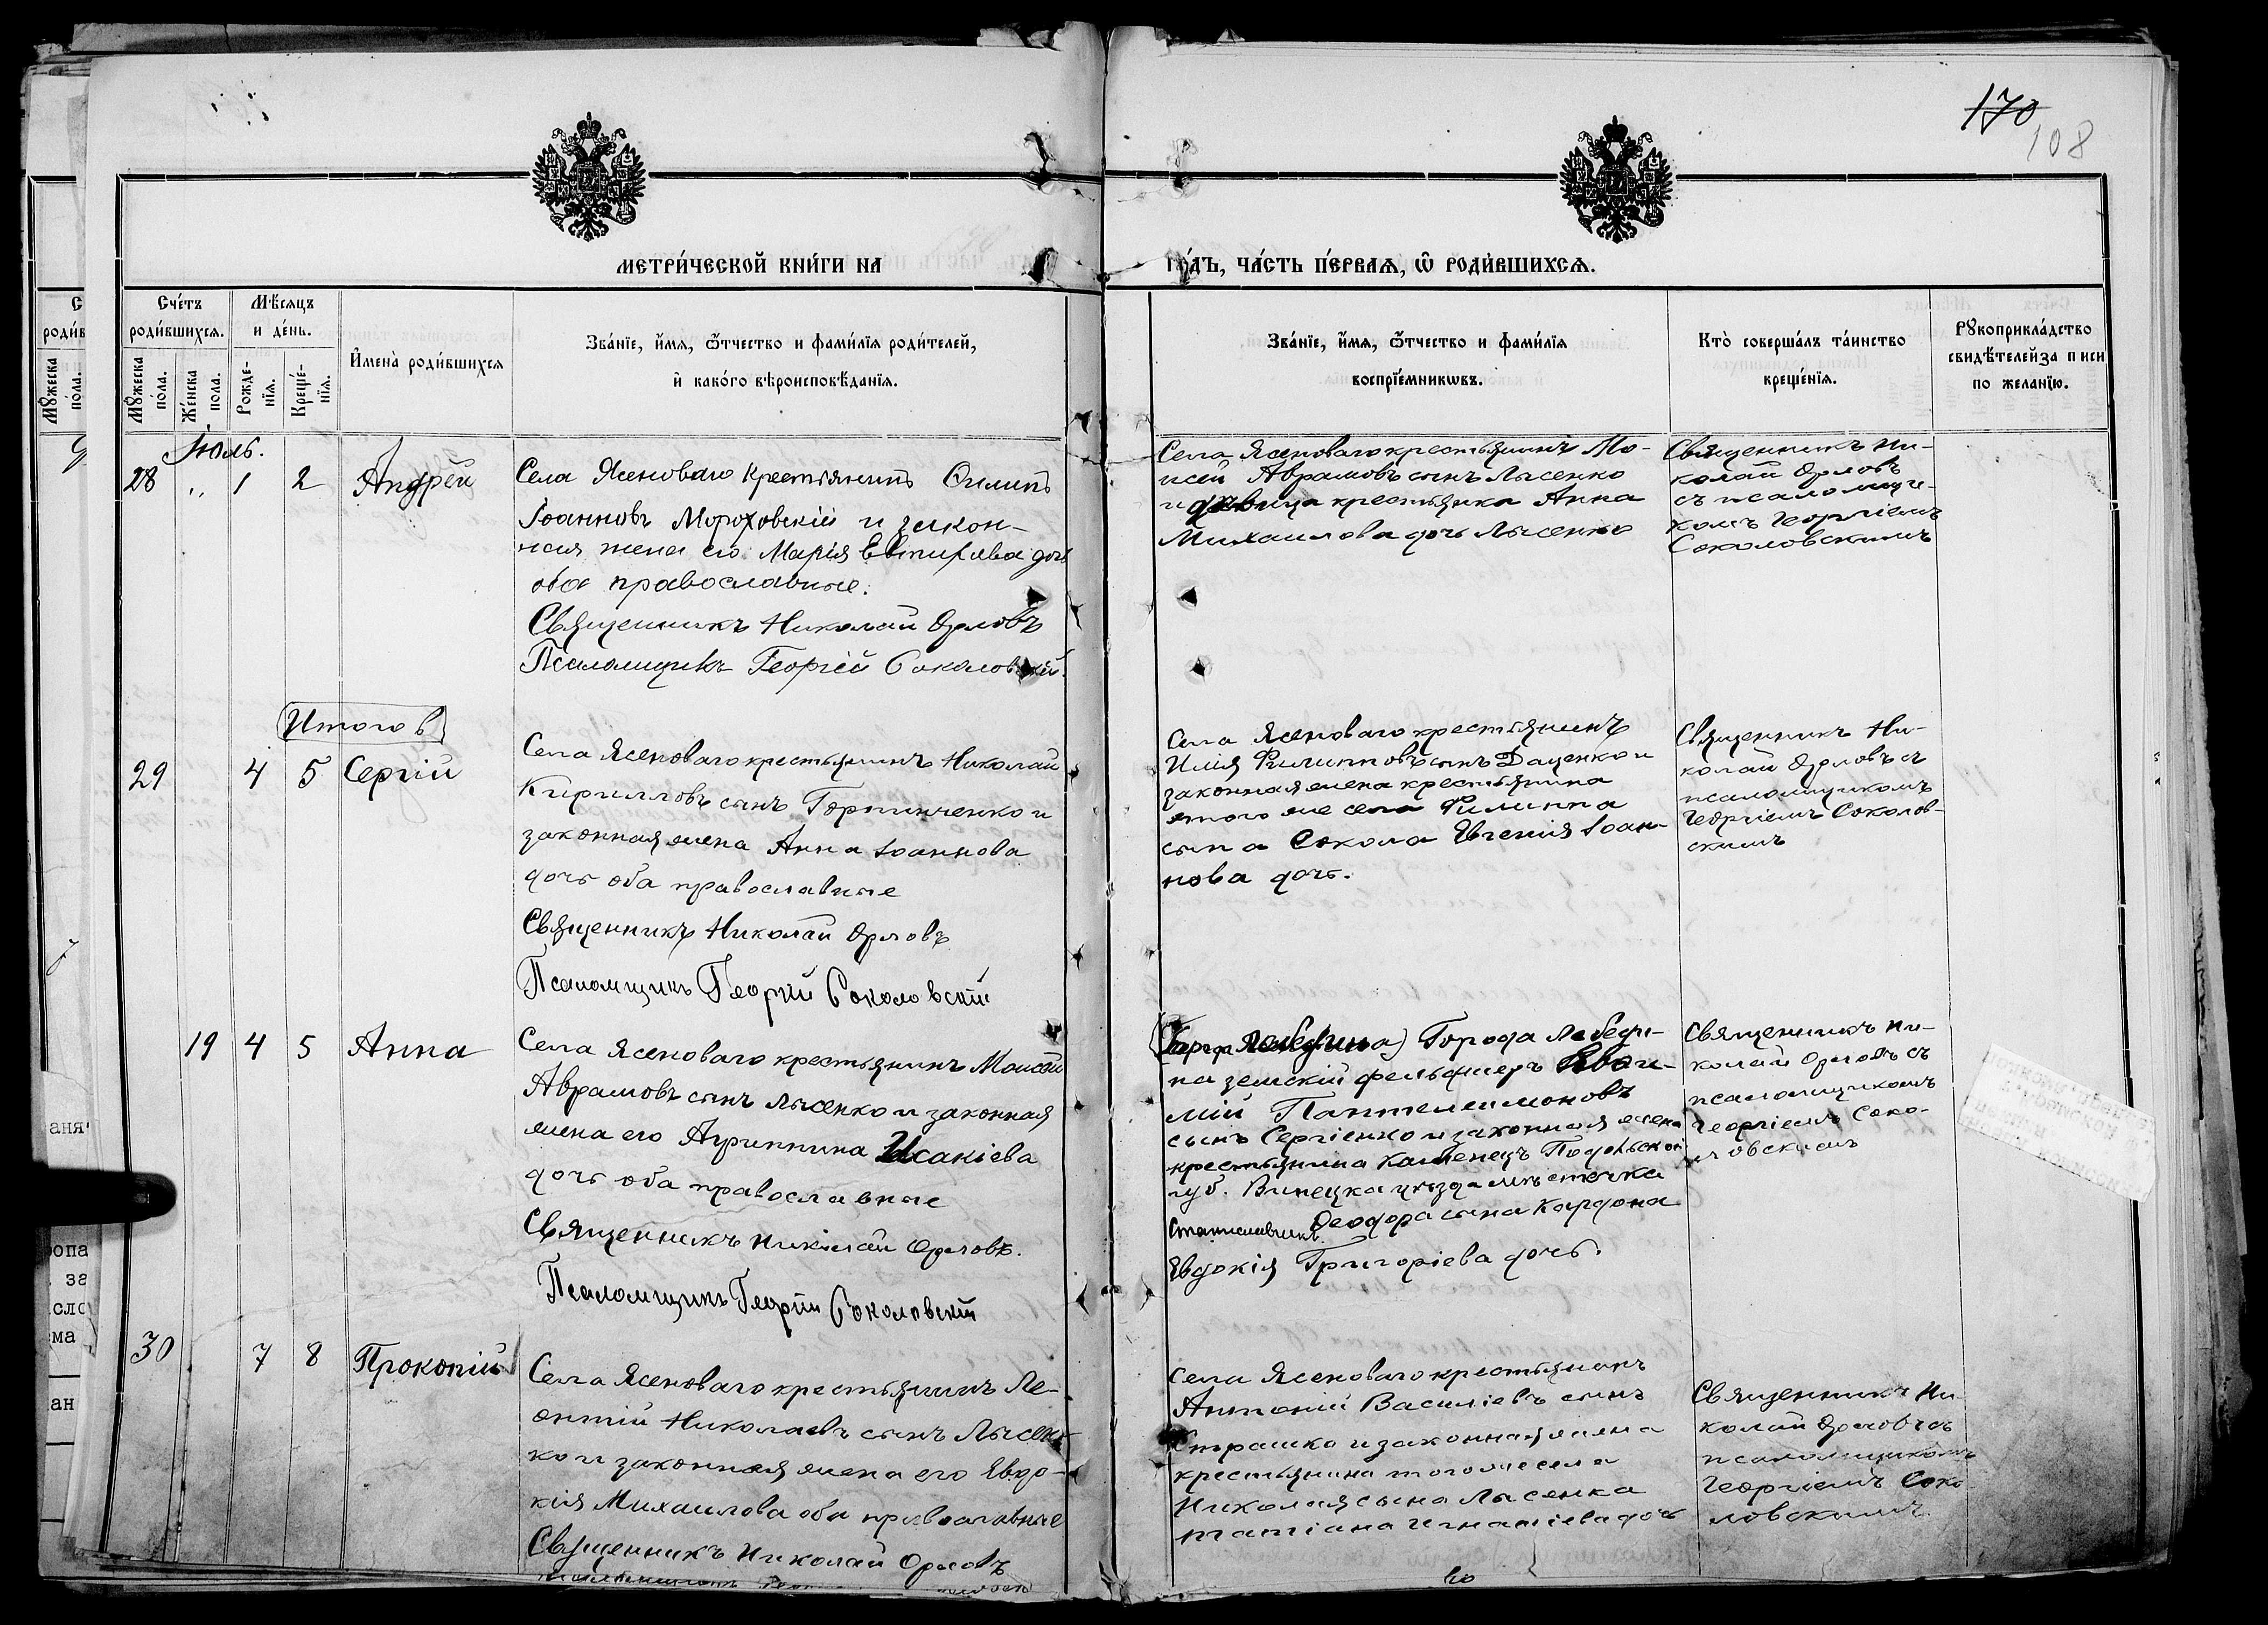 170
108
МЕТРИ́ЧЕСКОЙ КНИ́ГИ НА
ГО́ДЪ, ЧА́СТЬ ПЕ́РВАѦ, Ѽ РОДИ́ВШИХСѦ.
Сче́тъ
роди́вшихсѧ.
Мѣ́сѧцъ
и де́нь.
Мꙋ́жеска
по́ла.
Же́нска
пола.
Рожде-
нїѧ.
Креще́-
нїѧ.
И҆мена̀ роди́вшихсѧ
Зва́нїе, и҆́мѧ, ѻ҆́тчество и фами́лїѧ роди́телей,
и҆ како́го вѣроисповѣ́данїѧ.
Зва́нїе, и҆́мѧ, ѻ҆́тчество и фами́лїѧ
воспрїе́мникѡвъ.
Кто̀ соверша́лъ та́инство
креще́нїѧ.
Рꙋкоприкла́дство
свидѣ́телей записи
по жела́нїю.
Іюль.
28 „ 1 2 Андрей
Села Ясеноваго крестьянинъ Филипъ
Іоанновъ Мороховскій и закон-
ная жена его Марія Евтихіева дочь
оба православные.
Священникъ Николай Орловъ
Псаломщикъ Георгій Соколовскій.
Села Ясеноваго крестьянинъ Мо-
исей Аврамовъ сынъ Лысенко
и девица крестьянка Анна
Михаилова дочь Лысенко
Священникъ Ни-
колай Орловъ
съ псаломщи-
комъ Георгіемъ
Соколовскимъ
Итого в
29 4 5 Сергій
Села Ясеноваго крестьянинъ Николай
Кирилловъ сынъ Горпинченко и
законная жена Анна Іоаннова
дочь оба православные
Священникъ Николай Орловъ
Псаломщикъ Георгій Соколовскій
Села Ясеноваго крестьянинъ
Илія Филипповъ сынъ Даценко и
законная жена крестьянина
этого же села Филиппа
сына Сокола Евгенія Іоан-
нова дочь.
Священникъ Ни-
колай Орловъ съ
псаломщикомъ
Георгіемъ Соколов-
скимъ
19 4 5 Анна
Села Ясеноваго крестьянинъ Моисей
Аврамовъ сынъ Лысенко и законная
жена его Агриппина Исакіева
дочь оба православные
Священникъ Николай Орловъ.
Псаломщикъ Георгій Соколовскій
(Города Лебедина) Города Лебеди-
на земскій фельдшеръ
мій Пантелеимоновъ
сынъ Сергіенко и законная жена
крестьянина Каменецъ Подольской
губ. Винецка уѣзда мѣстечка
Станиславчикъ Ѳеодора сына Кардона
Евдокія Григоріева дочь.
Священникъ Ни-
колай Орловъ съ
псаломщикомъ
Георгіемъ Соко-
ловскимъ
30 7 8 Прокопій
Села Ясеноваго крестьянинъ Ле-
онтій Николаевъ сынъ Лысен-
ко и законная жена его Евдо-
кія Михаилова оба православные
Священникъ Николай Орловъ
Села Ясеноваго крестьянинъ
Антоній Василіевъ сынъ
Страшко и законная жена
крестьянина того же села
Николая сына Лысенка
Татіана Игнатіева дочь
Священникъ Ни-
колай Орловъ съ
псаломщикомъ
Георгіемъ Соко-
ловскимъ